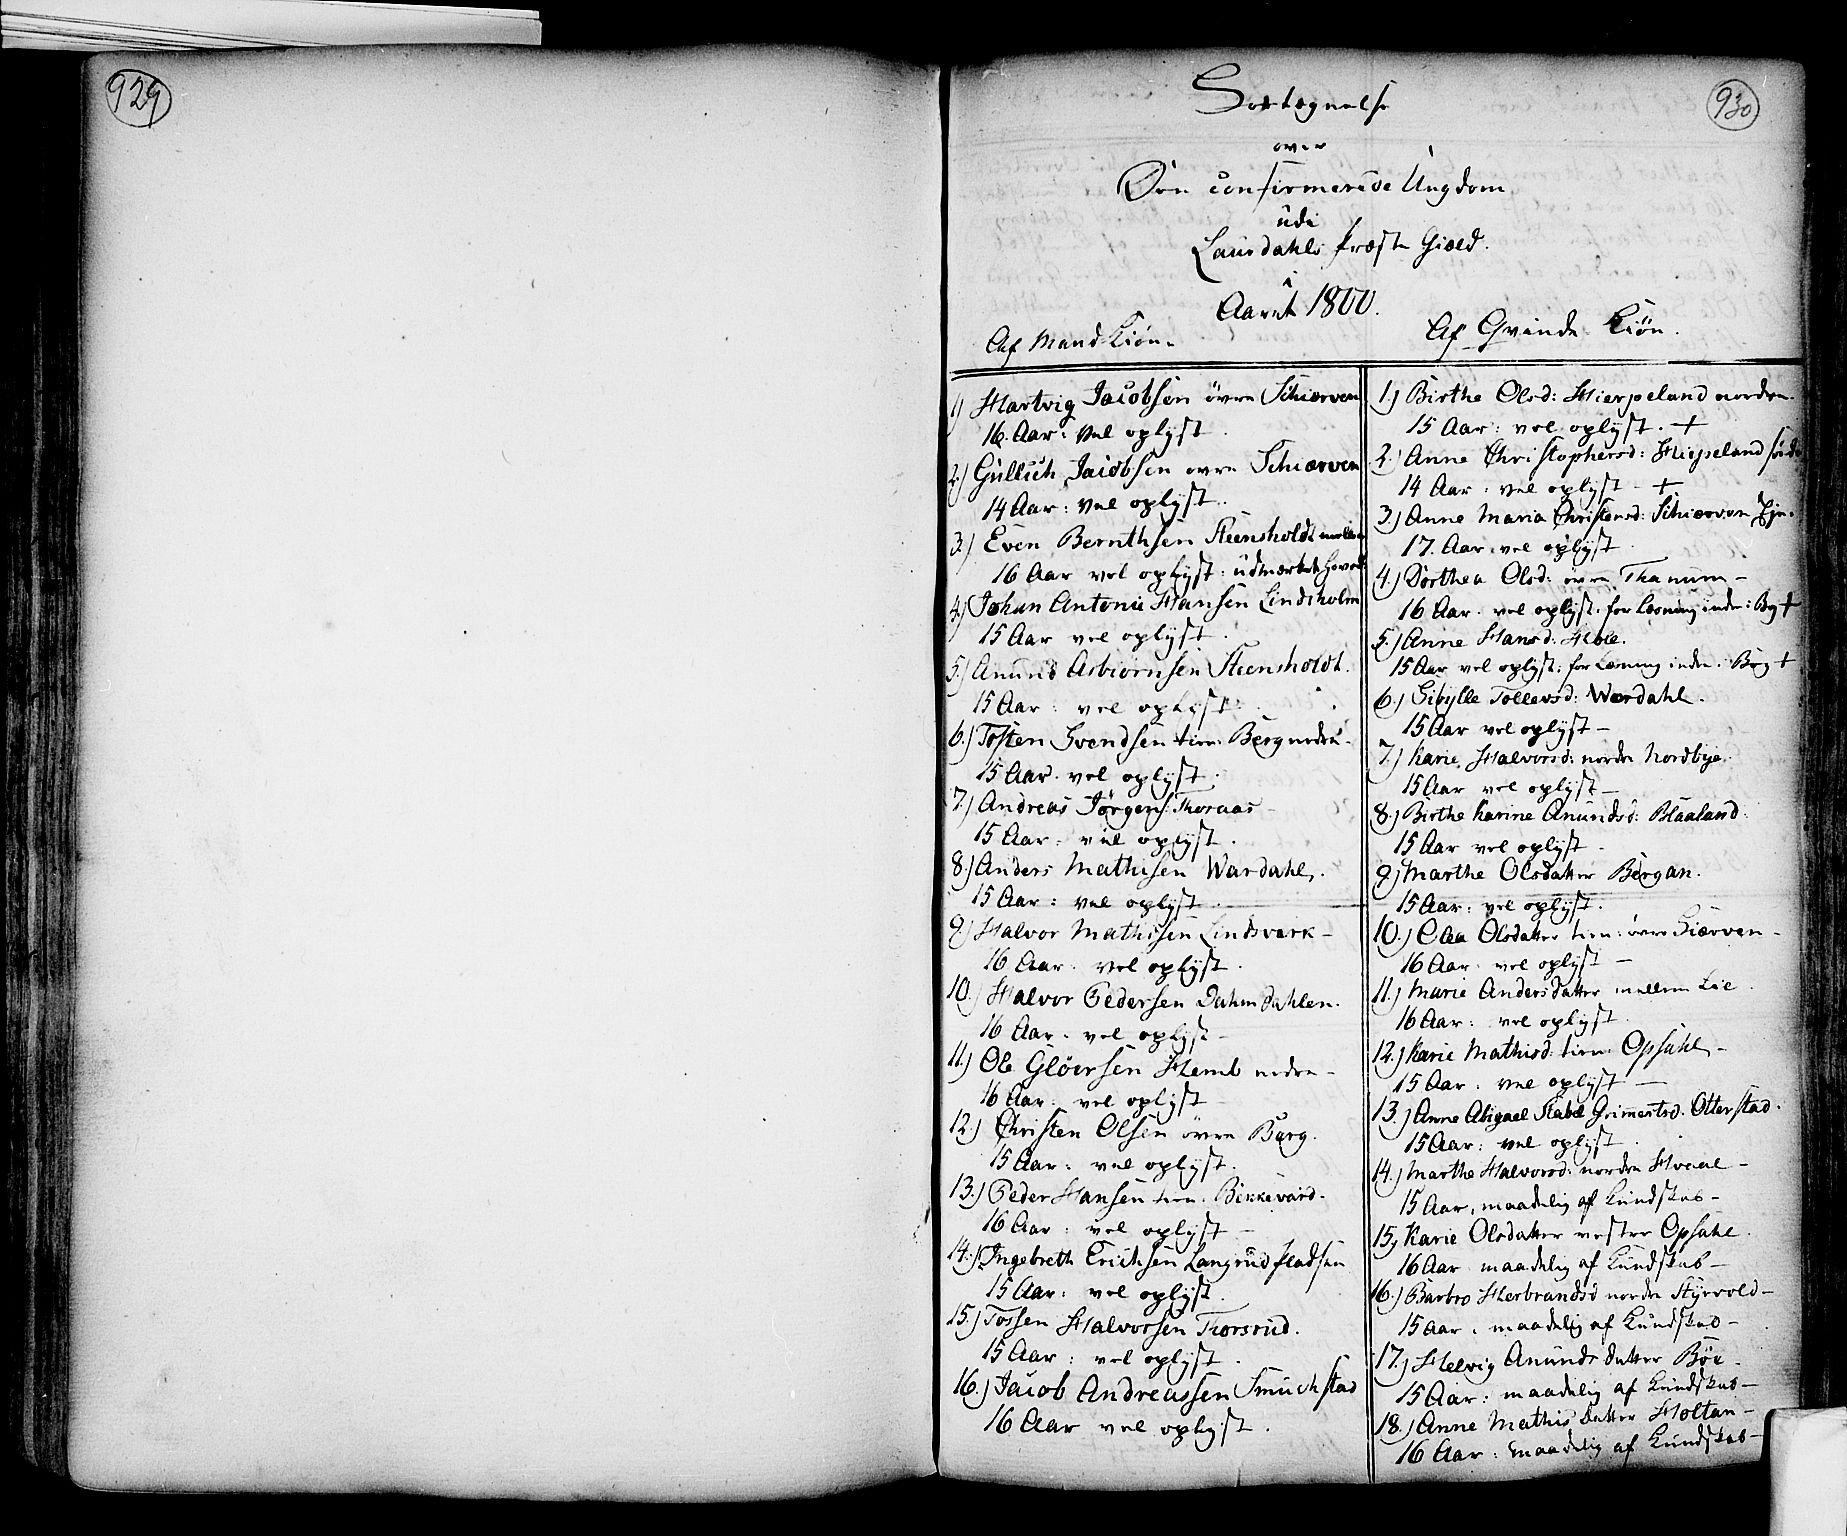 929
930
Fortegnelse
over
Den confirmerede Ungdom
udi
Laurdahls Præste Gield.
i
Aaret 1800.
Af Mand Kiøn.
1) Hartvig Jacobsen øvre Schierven
16. Aar: vel oplyst.
2.) Gullich Jacobsen øvre Schierven
14 Aar: vel oplyst.
3.) Even Bernthsen Steensholdt mellem
16 Aar vel oplyst: udmærket Hoved
4.) Johan Antonie Hansen Lindsholm
15 Aar vel oplyst.
5.) Anund Asbiørnsen Steensholdt.
15 Aar: vel oplyst.
6.) Tosten Svendsen tien: Berg nedre.
15 Aar. vel oplyst.
7.) Andreas Jørgens: Thoraas
15 Aar: vel oplyst.
8.) Anders Mathisen Wardahl.
15 Aar: vel oplyst.
9) Halvor Mathisen Lindsverk
16 Aar: vel oplyst.
10.) Halvor Pedersen Dahmdahlen.
16 Aar: vel oplyst
11.) Ole Gløersen Heml nedre
16 Aar: vel oplyst
12.) Christen Olsen øvre Berg.
15 Aar: vel oplyst.
13.) Peder Hansen tien: Bekkevard.
16 Aar: vel oplyst
14.) Ingebreth Erichsen Langrud pladsen
15 Aar: vel oplyst.
15.) Tossen Halvorsen Torsrud.
15 Aar: vel oplyst.
16.) Jacob Andreassen Smuchstad
16 Aar vel oplyst.
Af Qvinde Kiøn.
1.) Birthe Olsd: Hierpeland nordre.
15 Aar: vel oplyst. +
2.) Anne Christophersd: Hierpeland søndre
14 Aar: vel oplyst +
3.) Anne Maria Christensd: Schierven Eje.
17. Aar. vel oplyst.
4.) Dorthea Olsd: øvre Thanum
16 Aar. vel oplyst. for Læsning inden: Bog +
5.) Anne Hansd: Hole.
15 Aar vel oplyst: for Læsning inden: Bog +
6.) Sibylle Tollevsd: Wærdahl.
15 Aar vel oplyst
7.) Karie Halvorsd: nordre Nordbye.
15 Aar vel oplyst
8.) Birthe Karine Anundsd: Blaaland.
15 Aar vel oplyst.
9.) Marthe Olsdatter Bergan.
15 Aar: vel oplyst.
10.) Elea Olsdatter tien: øvre Sierven
16 Aar: vel oplyst
11.) Marie Andersdatter mellem Lie.
16 Aar: vel oplyst
12.) Karie Mathisd: tien: Opsahl
15 Aar: vel oplyst
13.) Anne Abigael Stabel Grimertsd: Otterstad.
15 Aar: vel oplyst
14.) Marthe Halvorsd: nordre Hvaal
15 Aar, maadelig af Kundskab
15) Karie Olsdatter vestre Opsahl.
16 Aar maadelig af Kundskab
16.) Barbro Herbrandsd nordre Styrvold
15 Aar. maadelig af Kundskab
17.) Helvig Anunds datter Bøe
15 Aar: maadelig af Kundskab
18.) Anne Mathis datter Holtan
16 Aar: maadelig af Kundskab